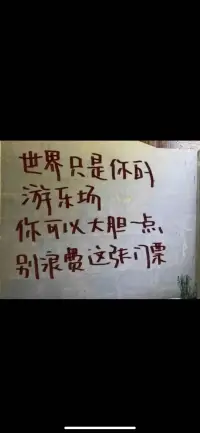 世界只是你的
游乐场
你可以大胆一点
别浪费这张门票